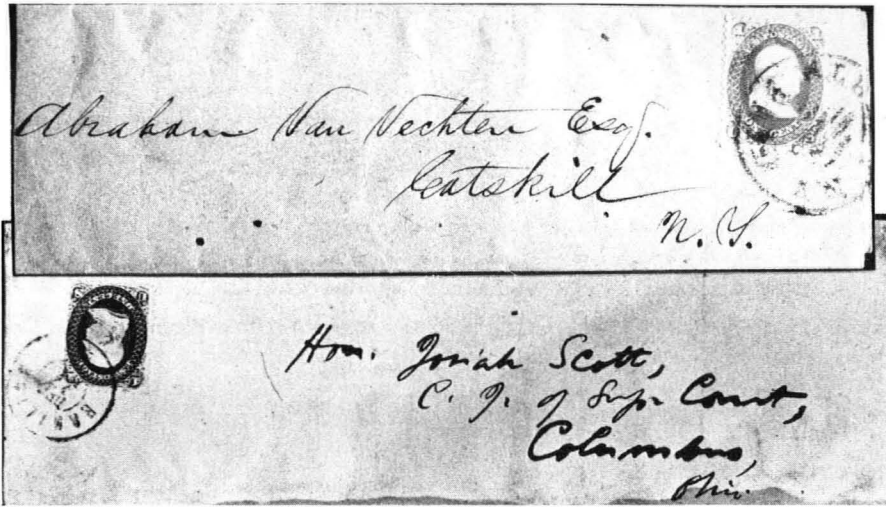 Abraham Van Vechten Esq.
Catskill
N. Y.
Hon. Josiah Scott,
C. J. of Supr Court,
Columbus,
Ohio.